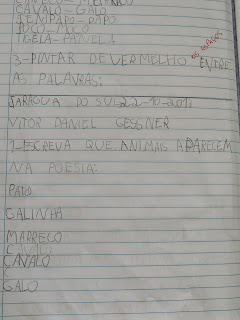 CAVALO-GALO
JENIPAPO-PAPO
POÇO-MOÇO
TIGELA-PANELA
3-PINTAR DE VERMELHO OS ESPAÇOS ENTRE
AS PALAVRAS:
JARAGUÁ DO SUL 22-10-201
VITOR DANIEL GESSNER
1-ESCREVA QUE ANIMAIS APARECEM
NA POESIA:
PATO
GALINHA
MARRECO
CAVALO
CAVALO
GALO